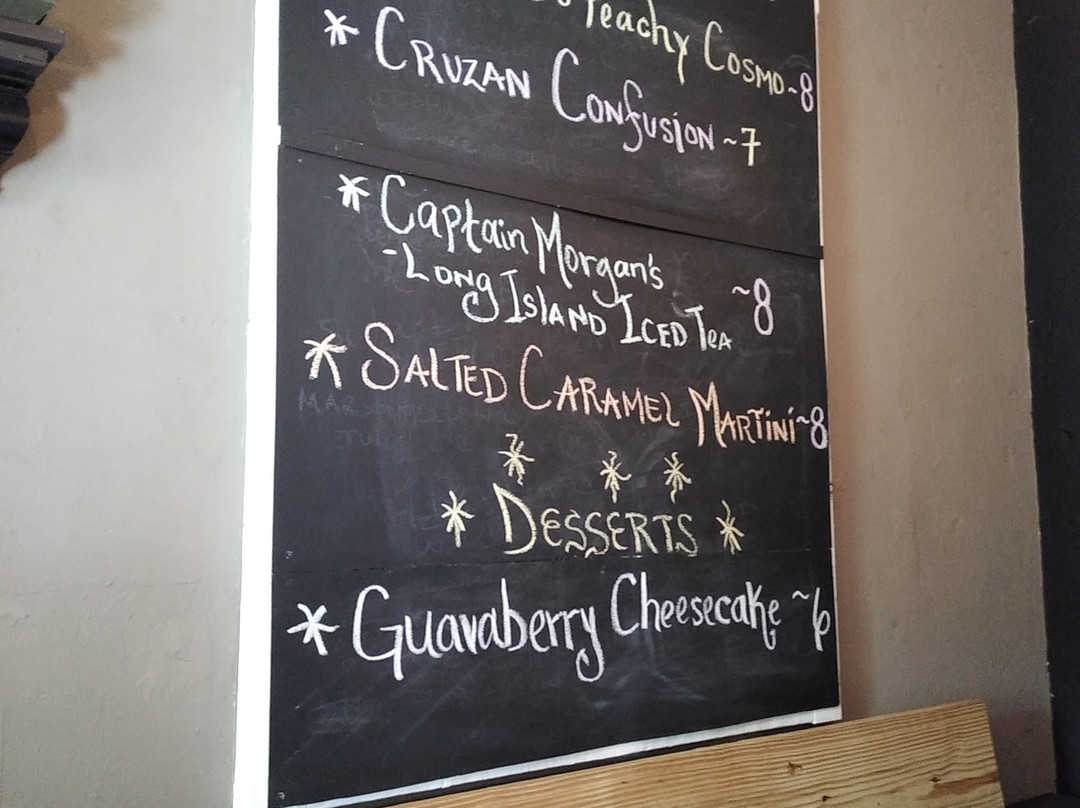 Peachy Cosmo ~8
* Cruzan Confusion ~7
* Captain Morgan's
-Long Island Iced Tea ~8
* Salted Caramel Martini ~8
* Desserts *
* Guavaberry Cheesecake ~6